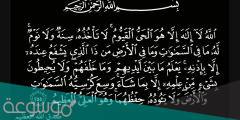 بسم الله الرحمن الرحيم
اللَّهُ لَا إِلَٰهَ إِلَّا هُوَ الْحَيُّ الْقَيُّومُ لَا تَأْخُذُهُ سِنَةٌ وَلَا نَوْمٌ
لَهُ مَا فِي السَّمَوَاتِ وَمَا فِي الْأَرْضِ مَن ذَا الَّذِي يَشْفَعُ عِندَهُ
إِلَّا بِإِذْنِهِ يَعْلَمُ مَا بَيْنَ أَيْدِيهِمْ وَمَا خَلْفَهُمْ وَلَا يُحِيطُونَ
بِشَيْءٍ مِّنْ عِلْمِهِ إِلَّا بِمَا شَاءَ وَسِعَ كُرْسِيُّهُ السَّمَوَاتِ
وَالْأَرْضَ وَلَا يَئُودُهُ حِفْظُهُمَا وَهُوَ الْعَلِيُّ الْعَظِيمُ
موسوعة